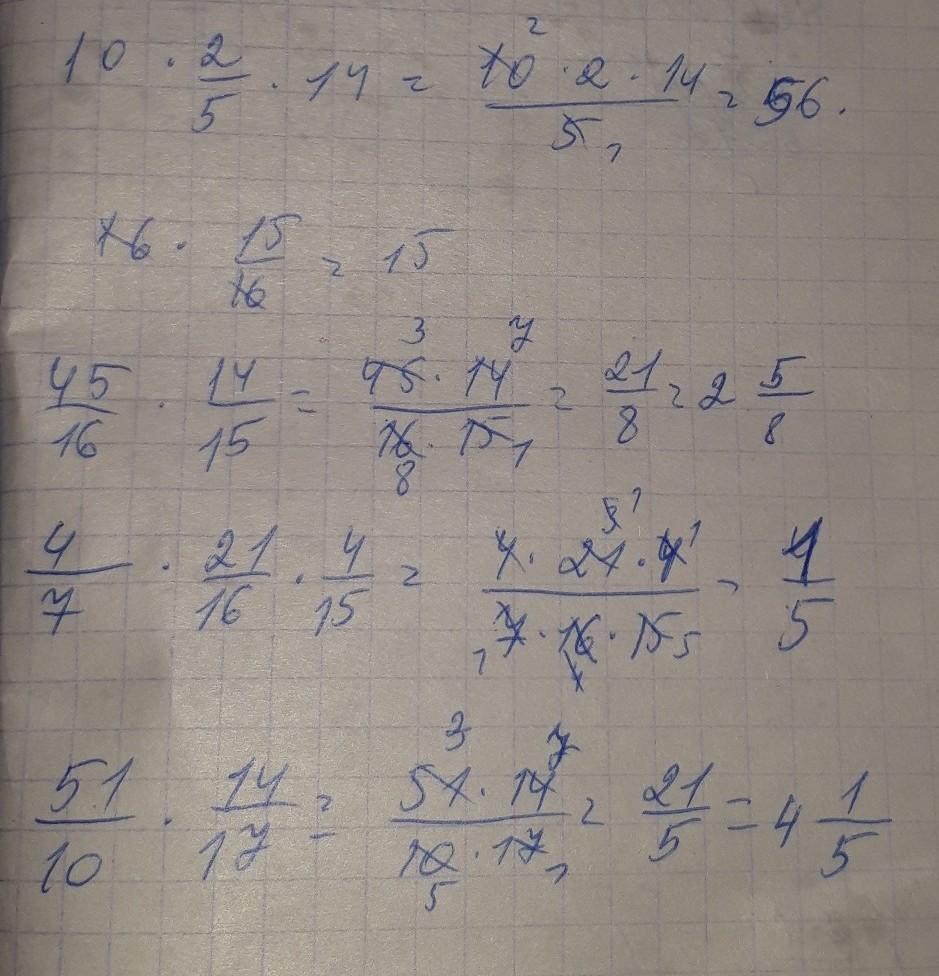 10 · 2/5 · 14 = 10² · 2 · 14 / 5 1 = 56.
16 · 15/16 = 15
45/16 · 14/15 = 45 3 · 14 7 / 16 8 · 15 1 = 21/8 = 2 5/8
4/7 · 21/16 · 4/15 = 4 · 21 3 1 · 4 1 / 7 1 · 16 4 · 15 5 = 1/5
51/10 · 14/17 = 51 3 · 14 7 / 10 5 · 17 1 = 21/5 = 4 1/5